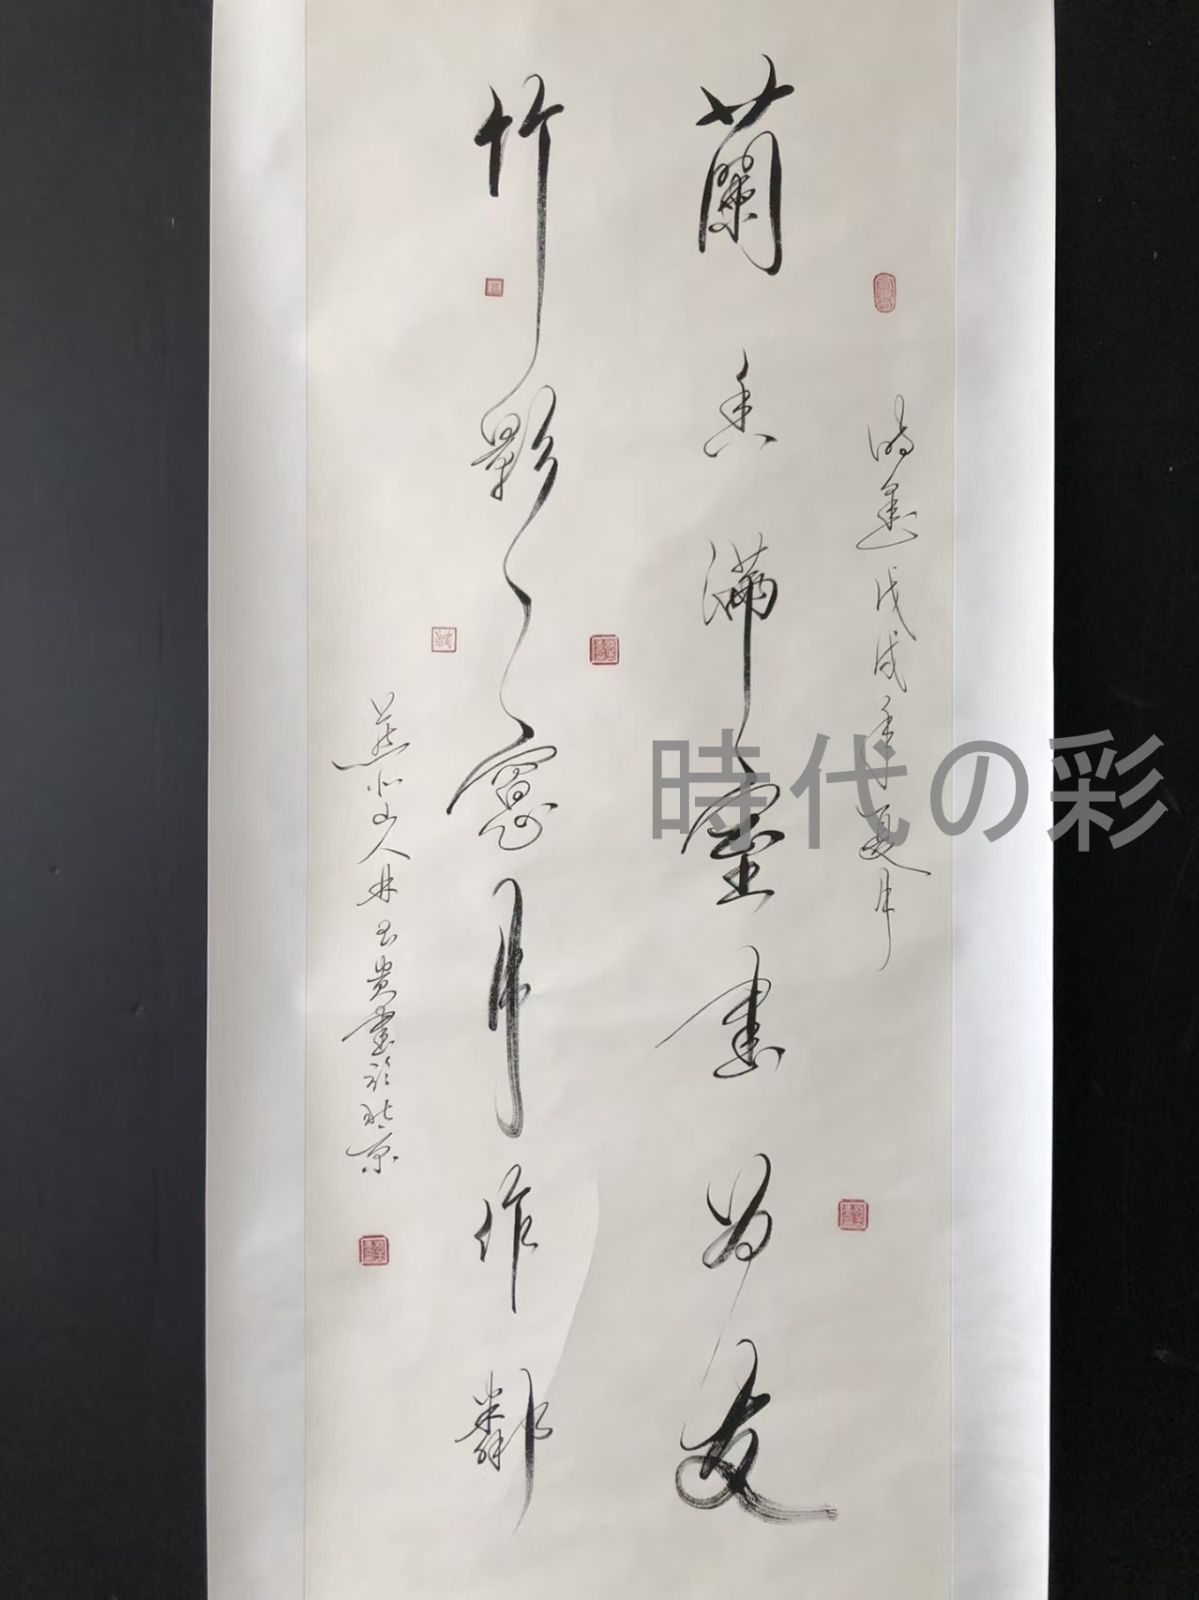 蘭香滿室書為友
竹影〻窓月作鄰
戊戌年夏月
燕山人林玉貴書於北京
時代の彩